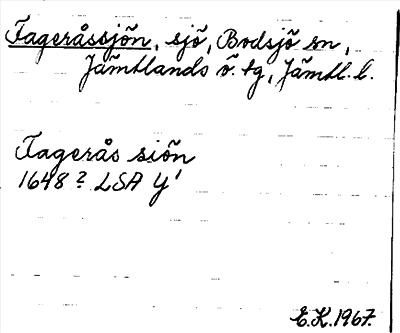 Fageråssjön, sjö, Bodsjö sn,
Jämtlands ö. tg, Jämtl. l.
Fagerås siön
1648 ? LSA Y'
E.K. 1967.